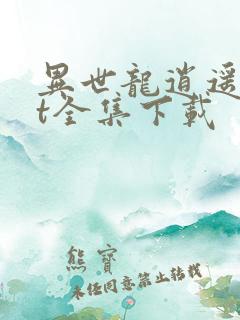 異世龍逍遥
t全集下載
熊寶
未經同意禁止轉載